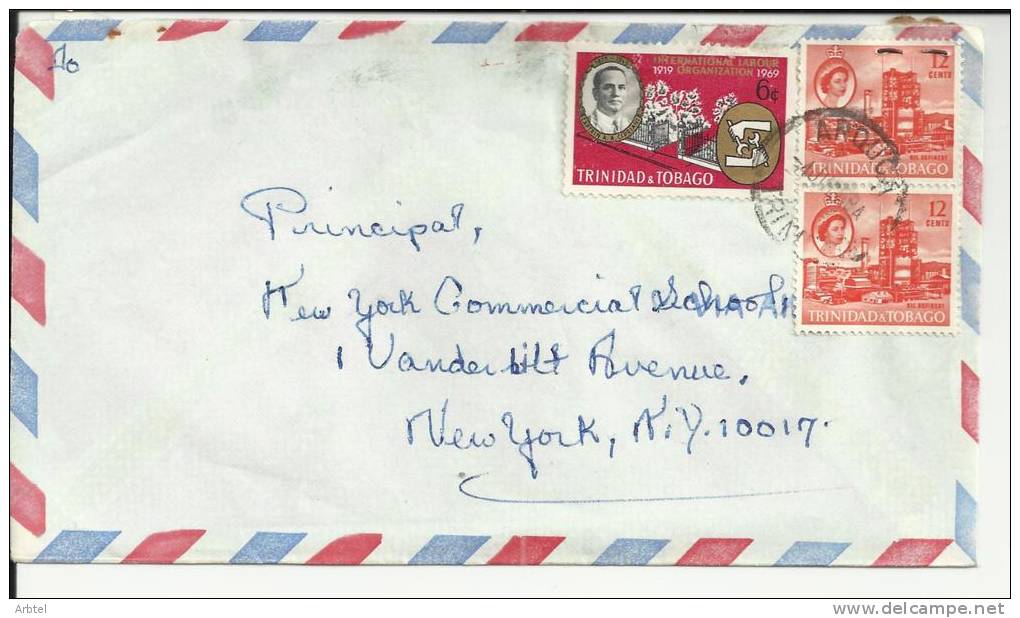 INTERNATIONAL LABOUR
1919 ORGANIZATION 1969
6¢
TRINIDAD & TOBAGO
12
CENTS
OIL REFINERY
TRINIDAD & TOBAGO
12
CENTS
OIL REFINERY
TRINIDAD & TOBAGO
Principal,
New York Commercial School,
1 Vanderbilt Avenue,
New York, N.Y. 10017.
Arbtel
www.delcampe.net